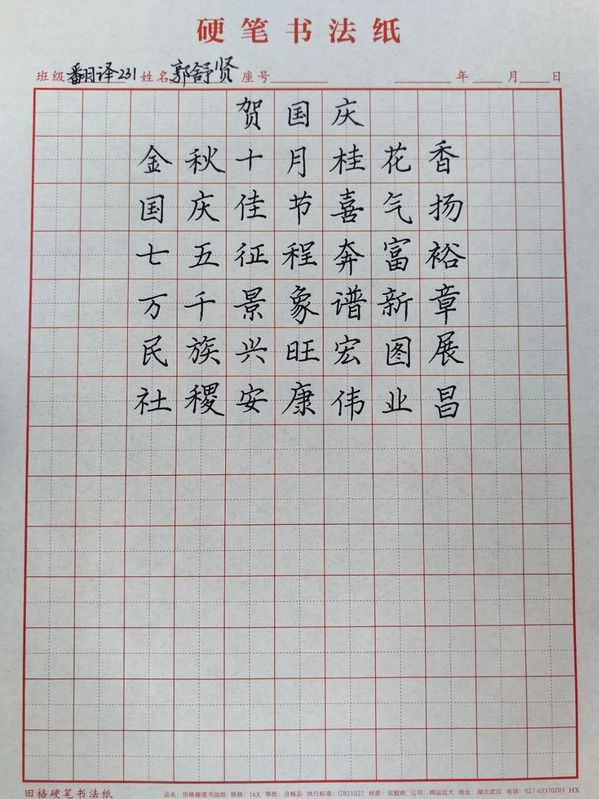 硬笔书法纸
班级翻译231姓名郭舒贤座号 年 月 日
贺国庆
金秋十月桂花香
国庆佳节喜气扬
七五征程奔富裕
万千景象谱新章
民族兴旺宏图展
社稷安康伟业昌
田格硬笔书法纸 品名：田格硬笔书法纸 规格：16K 等级：合格品 执行标准：GB21027 材质：双胶纸 公司：鸿运远大 地址：湖北武汉 电话：027-63370203 HX